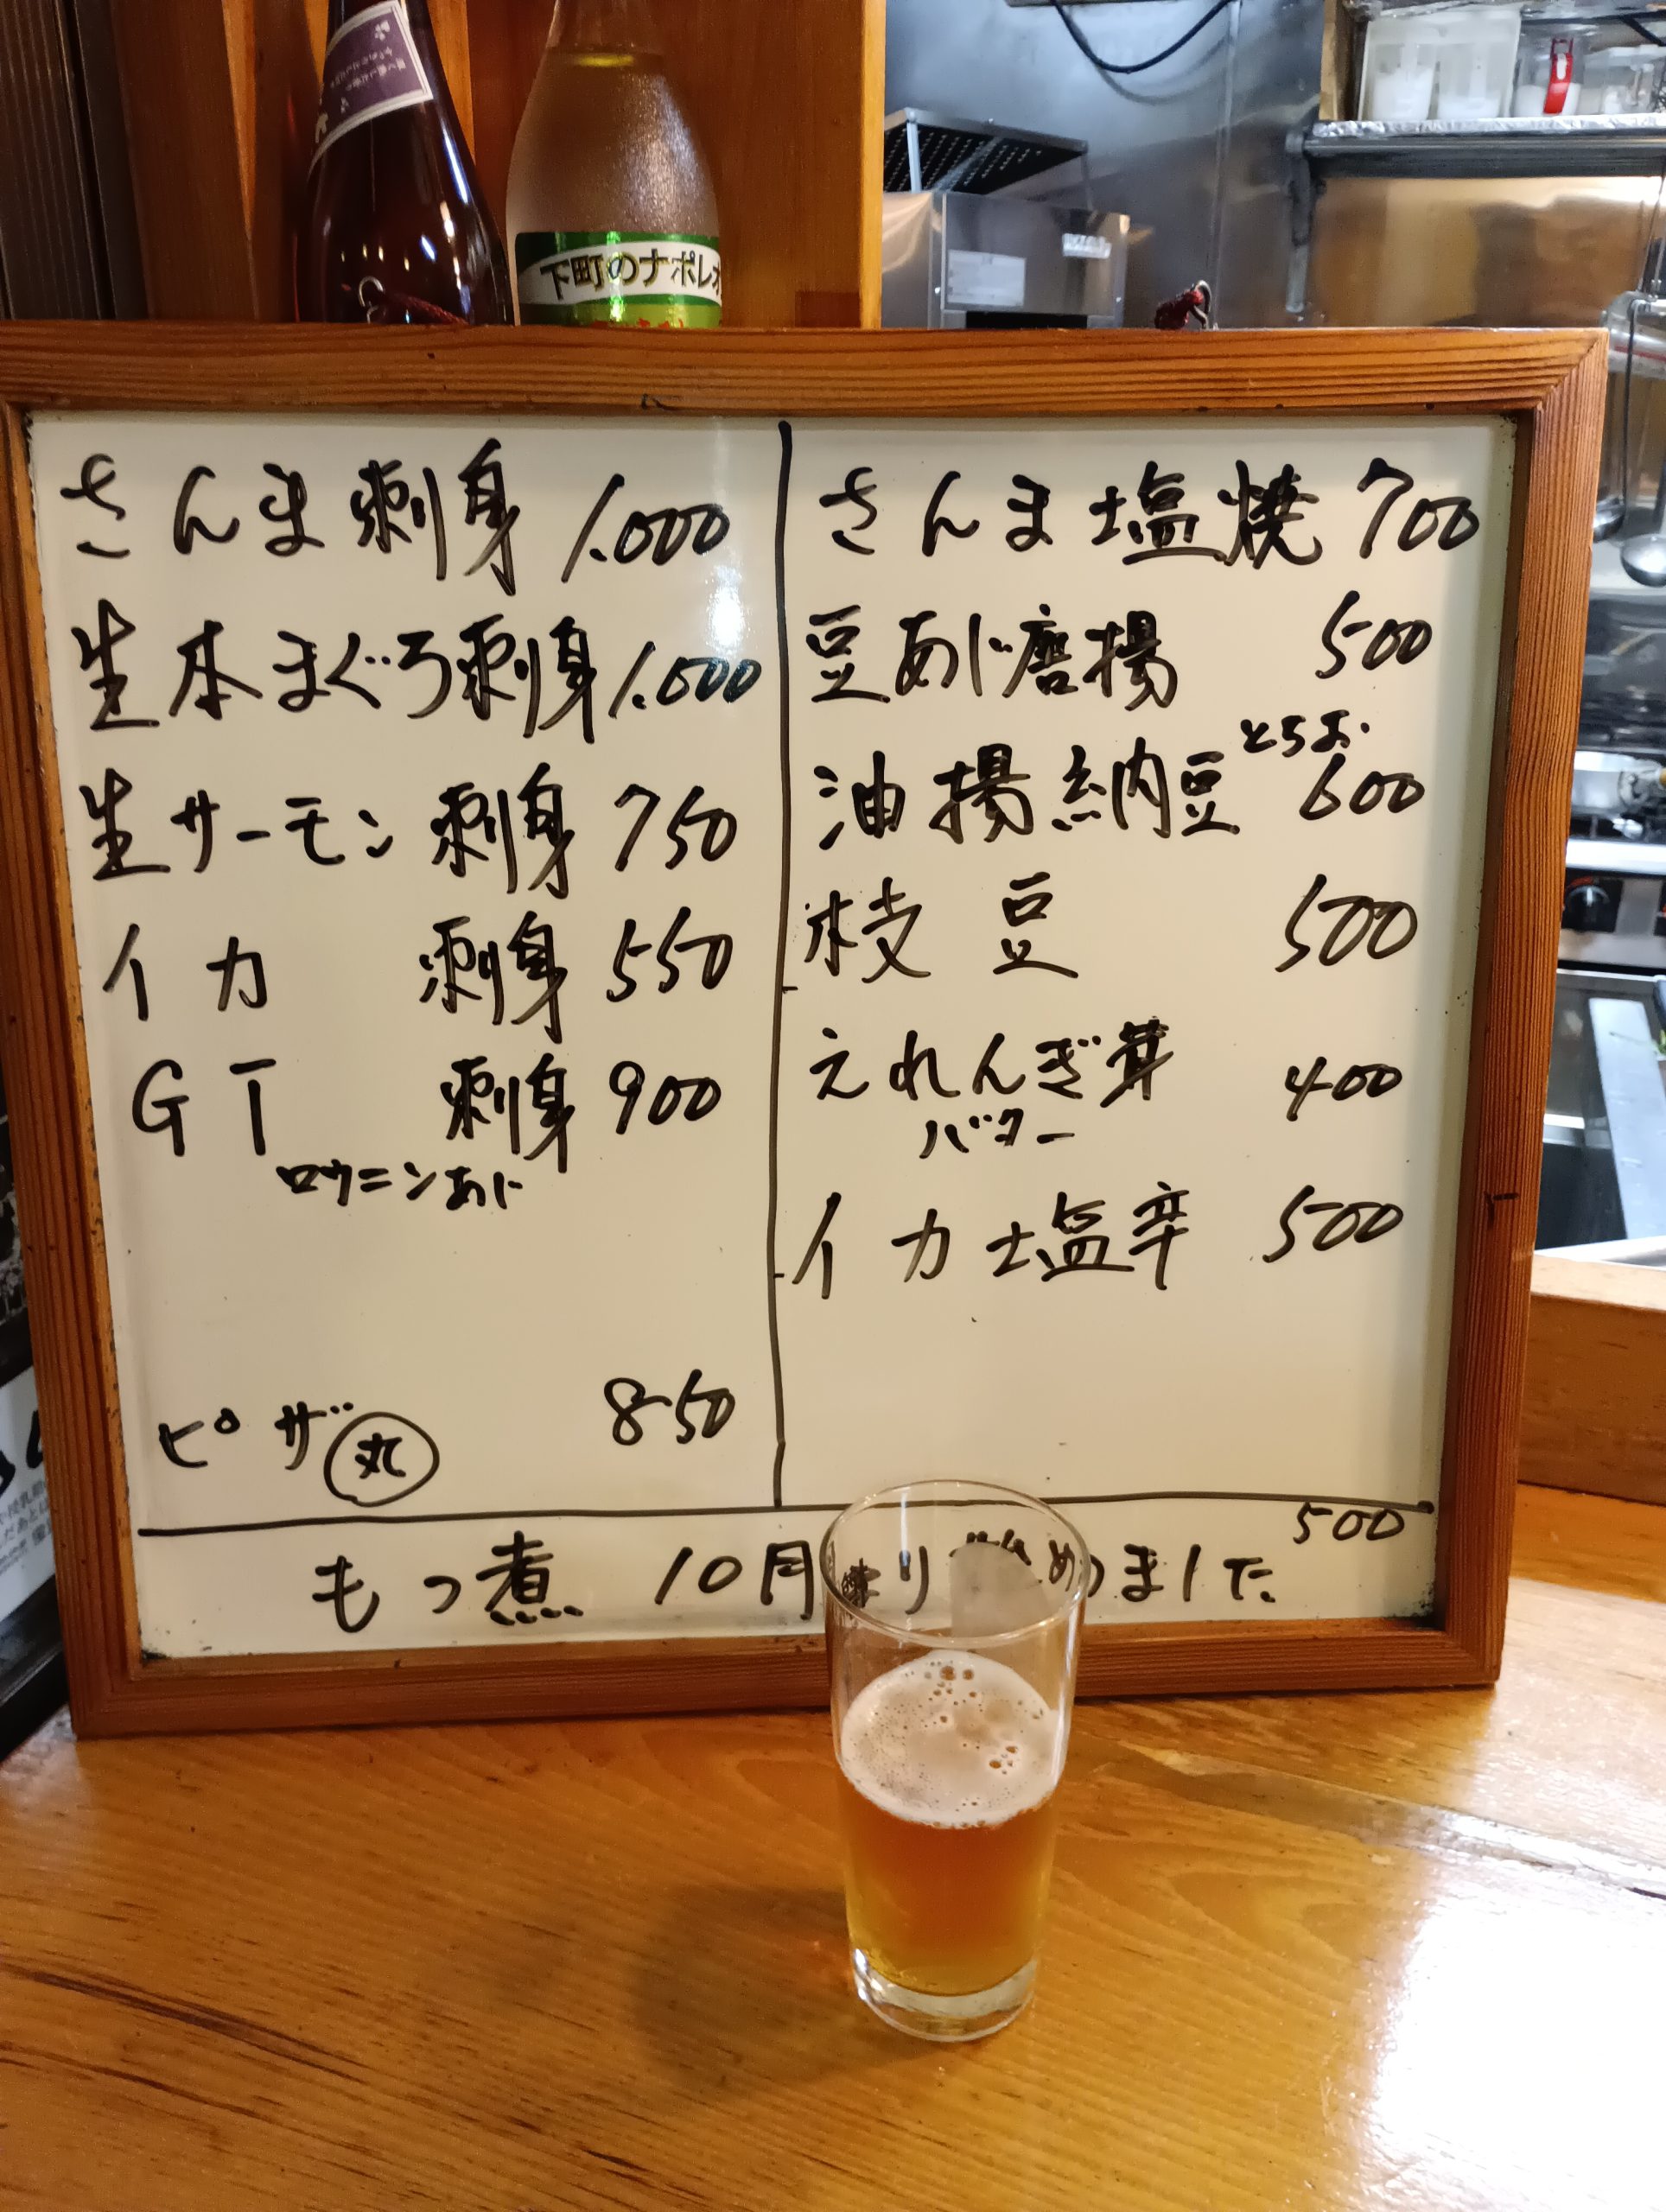 下町のナポレオ
さんま刺身 1.000
生本まぐろ刺身 1.000
生サーモン 刺身 750
イカ 刺身 550
GT 刺身 900
ロウニンあじ
ピザ 丸 850
さんま塩焼 700
豆あじ唐揚 500
とちお
油揚納豆 600
枝豆 500
えれんぎ茸 400
バター
イカ塩辛 500
500
もつ煮 10月より始めました